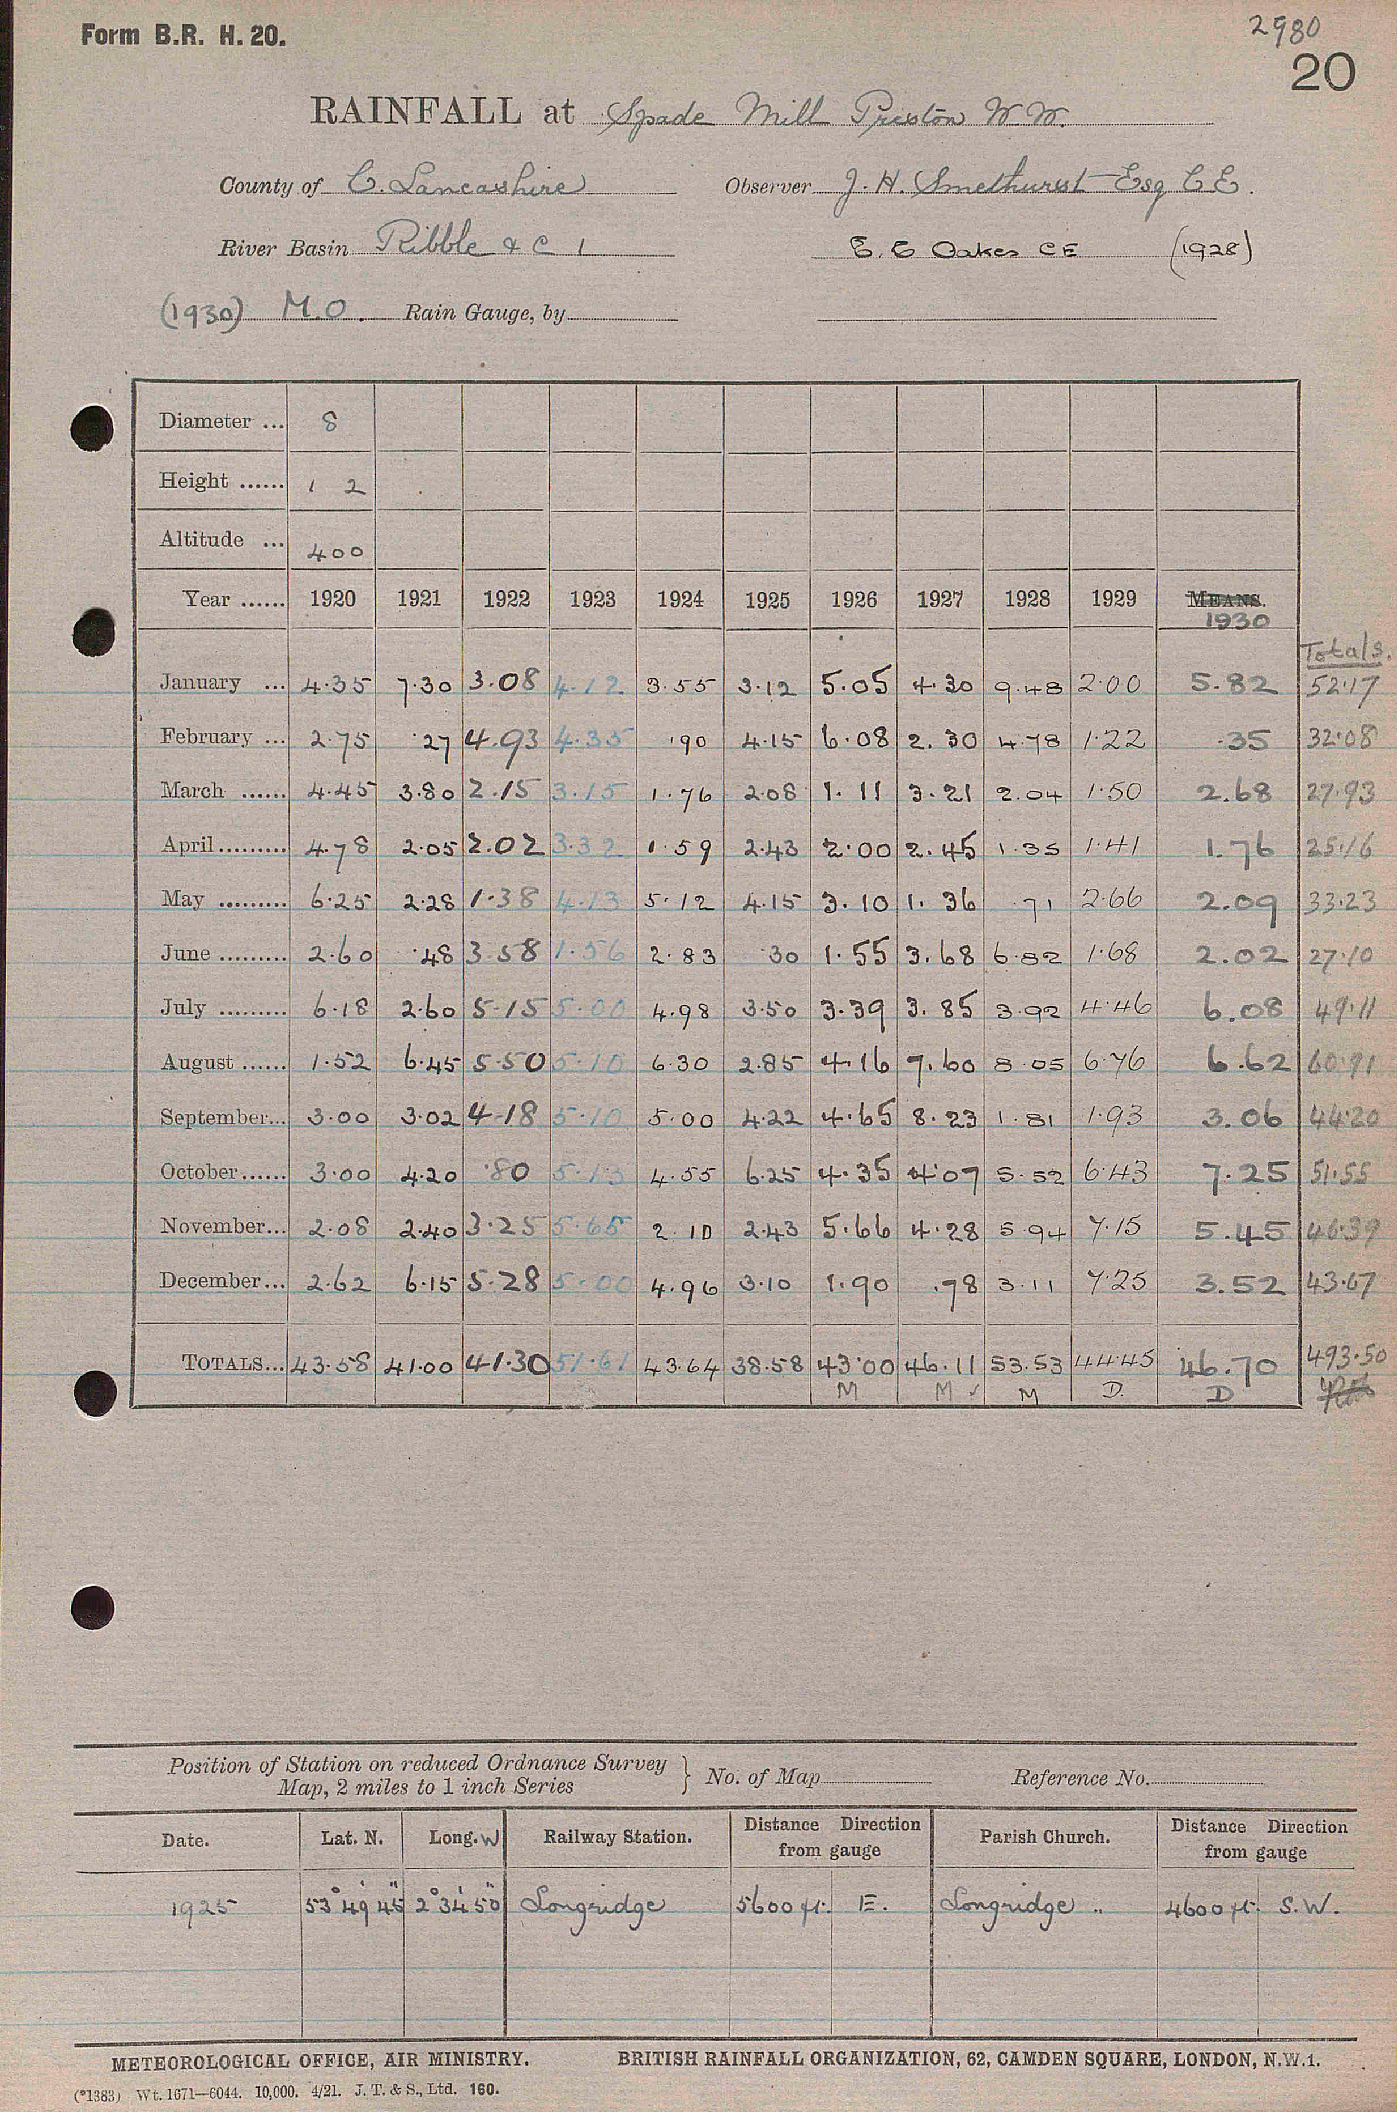 Form B.R. H. 20.
2980
20
RAINFALL at Spade Mill Preston W.W.
County of C. Lancashire Observer J. H. Smethurst Esq C E.
River Basin Ribble & C 1 E. E Oakes C E (1928)
(1930) M.O. Rain Gauge, by
Diameter ... 8
Height ...... 1 2
Altitude ... 400
Year ...... 1920 1921 1922 1923 1924 1925 1926 1927 1928 1929 MEANS.
1930
Totals.
January ... 4.35 7.30 3.08 4.12 3.55 3.12 5.05 4.30 9.48 2.00 5.82 52.17
February ... 2.75 .27 4.93 4.35 .90 4.15 6.08 2.30 4.78 1.22 .35 32.08
March ...... 4.45 3.80 2.15 3.15 1.76 2.08 1.11 3.21 2.04 1.50 2.68 27.93
April ......... 4.78 2.05 2.02 3.32 1.59 2.43 2.00 2.45 1.35 1.41 1.76 25.16
May ......... 6.25 2.28 1.38 4.13 5.12 4.15 3.10 1.36 .71 2.66 2.09 33.23
June ......... 2.60 .48 3.58 1.56 2.83 .30 1.55 3.68 6.82 1.68 2.02 27.10
July ......... 6.18 2.60 5.15 5.00 4.98 3.50 3.39 3.85 3.92 4.46 6.08 49.11
August ...... 1.52 6.45 5.50 5.10 6.30 2.85 4.16 7.60 8.05 6.76 6.62 60.91
September... 3.00 3.02 4.18 5.10 5.00 4.22 4.65 8.23 1.81 1.93 3.06 44.20
October...... 3.00 4.20 .80 5.13 4.55 6.25 4.35 4.07 5.52 6.43 7.25 51.55
November... 2.08 2.40 3.25 5.65 2.10 2.43 5.66 4.28 5.94 7.15 5.45 46.39
December... 2.62 6.15 5.28 5.00 4.96 3.10 1.90 .78 3.11 7.25 3.52 43.67
TOTALS... 43.58 41.00 41.30 51.61 43.64 38.58 43.00 46.11 53.53 44.45 46.70 493.50
M M ✓ M D. D
Position of Station on reduced Ordnance Survey
Map, 2 miles to 1 inch Series } No. of Map Reference No.
Date. Lat. N. Long. W Railway Station. Distance from gauge Direction Parish Church. Distance from gauge Direction
1925 53° 49' 45" 2° 34' 50" Longridge 5600 ft. E. Longridge .. 4600 ft. S.W.
METEOROLOGICAL OFFICE, AIR MINISTRY. BRITISH RAINFALL ORGANIZATION, 62, CAMDEN SQUARE, LONDON, N.W.1.
(*1383) Wt. 1671—6044. 10,000. 4/21. J. T. & S., Ltd. 160.